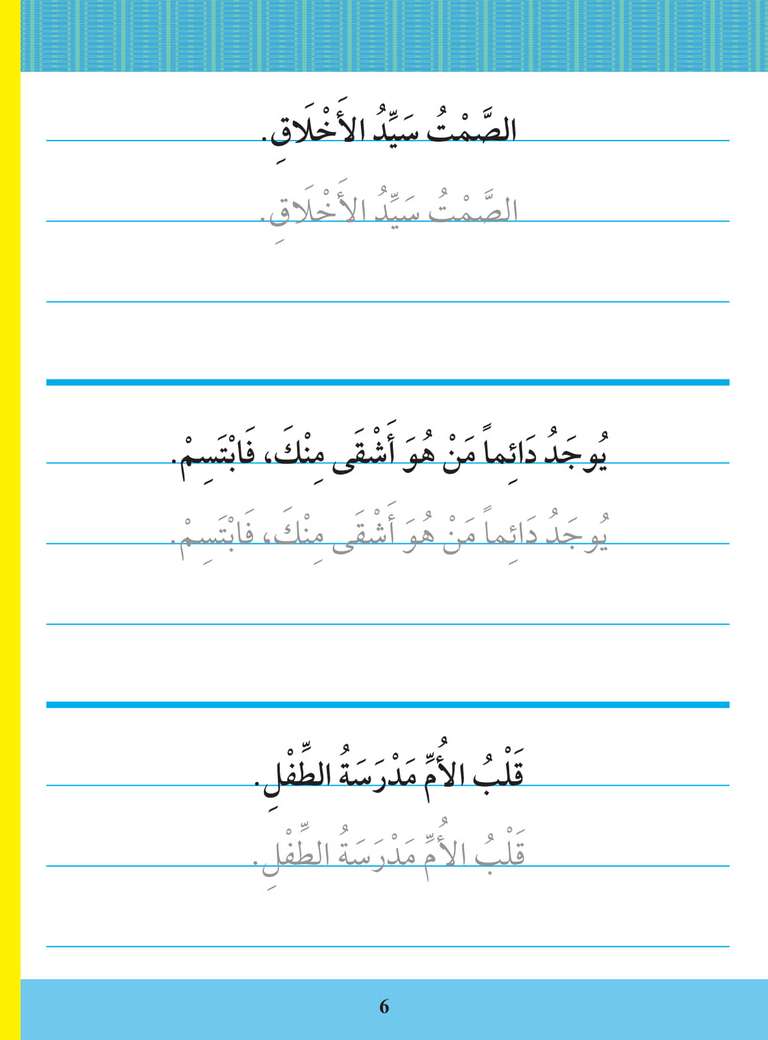 الصَّمْتُ سَيِّدُ الأَخْلَاقِ.
الصَّمْتُ سَيِّدُ الأَخْلَاقِ.
يُوجَدُ دَائِماً مَنْ هُوَ أَشْقَى مِنْكَ، فَابْتَسِمْ.
يُوجَدُ دَائِماً مَنْ هُوَ أَشْقَى مِنْكَ، فَابْتَسِمْ.
قَلْبُ الأُمِّ مَدْرَسَةُ الطِّفْلِ.
قَلْبُ الأُمِّ مَدْرَسَةُ الطِّفْلِ.
6